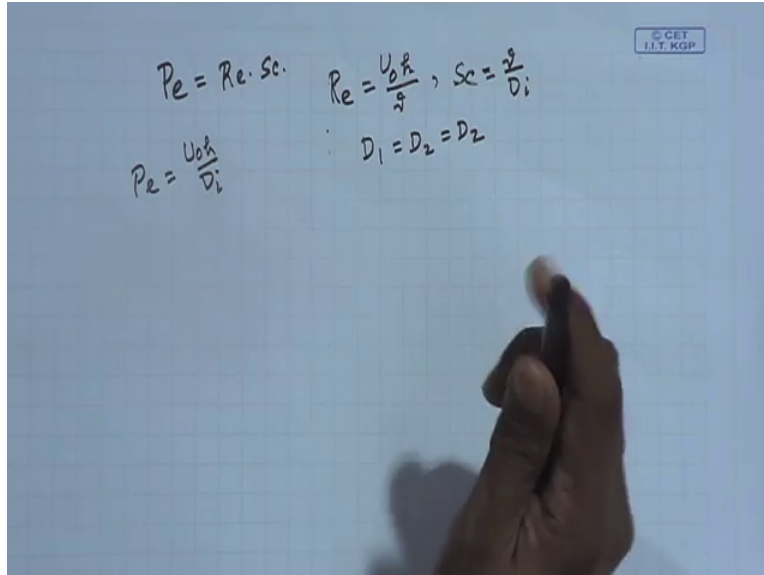 © CET
I.I.T. KGP
Pe = Re. Sc. Re = U₀h/ϑ , Sc = ϑ/Di
: D₁ = D₂ = D₂
Pe = U₀h/Di